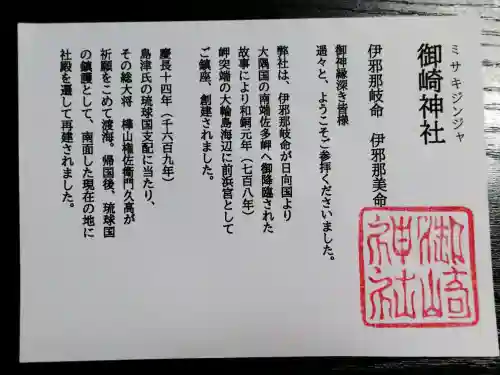 ミサキジンジャ
御崎神社
伊邪那岐命　伊邪那美命
御神縁深き皆様
遥々と、ようこそご参拝くださいました。
弊社は、伊邪那岐命が日向国より
大隅国の南端佐多岬へ御降臨された
故事により和銅元年（七百八年）
岬突端の大輪島海辺に前浜宮として
ご鎮座、創建されました。
慶長十四年（千六百九年）
島津氏の琉球国支配に当たり、
その総大将　樺山権佐衛門久高が
祈願をこめて渡海。帰国後、琉球国
の鎮護として、南面した現在の地に
社殿を還して再建されました。
御崎
神社